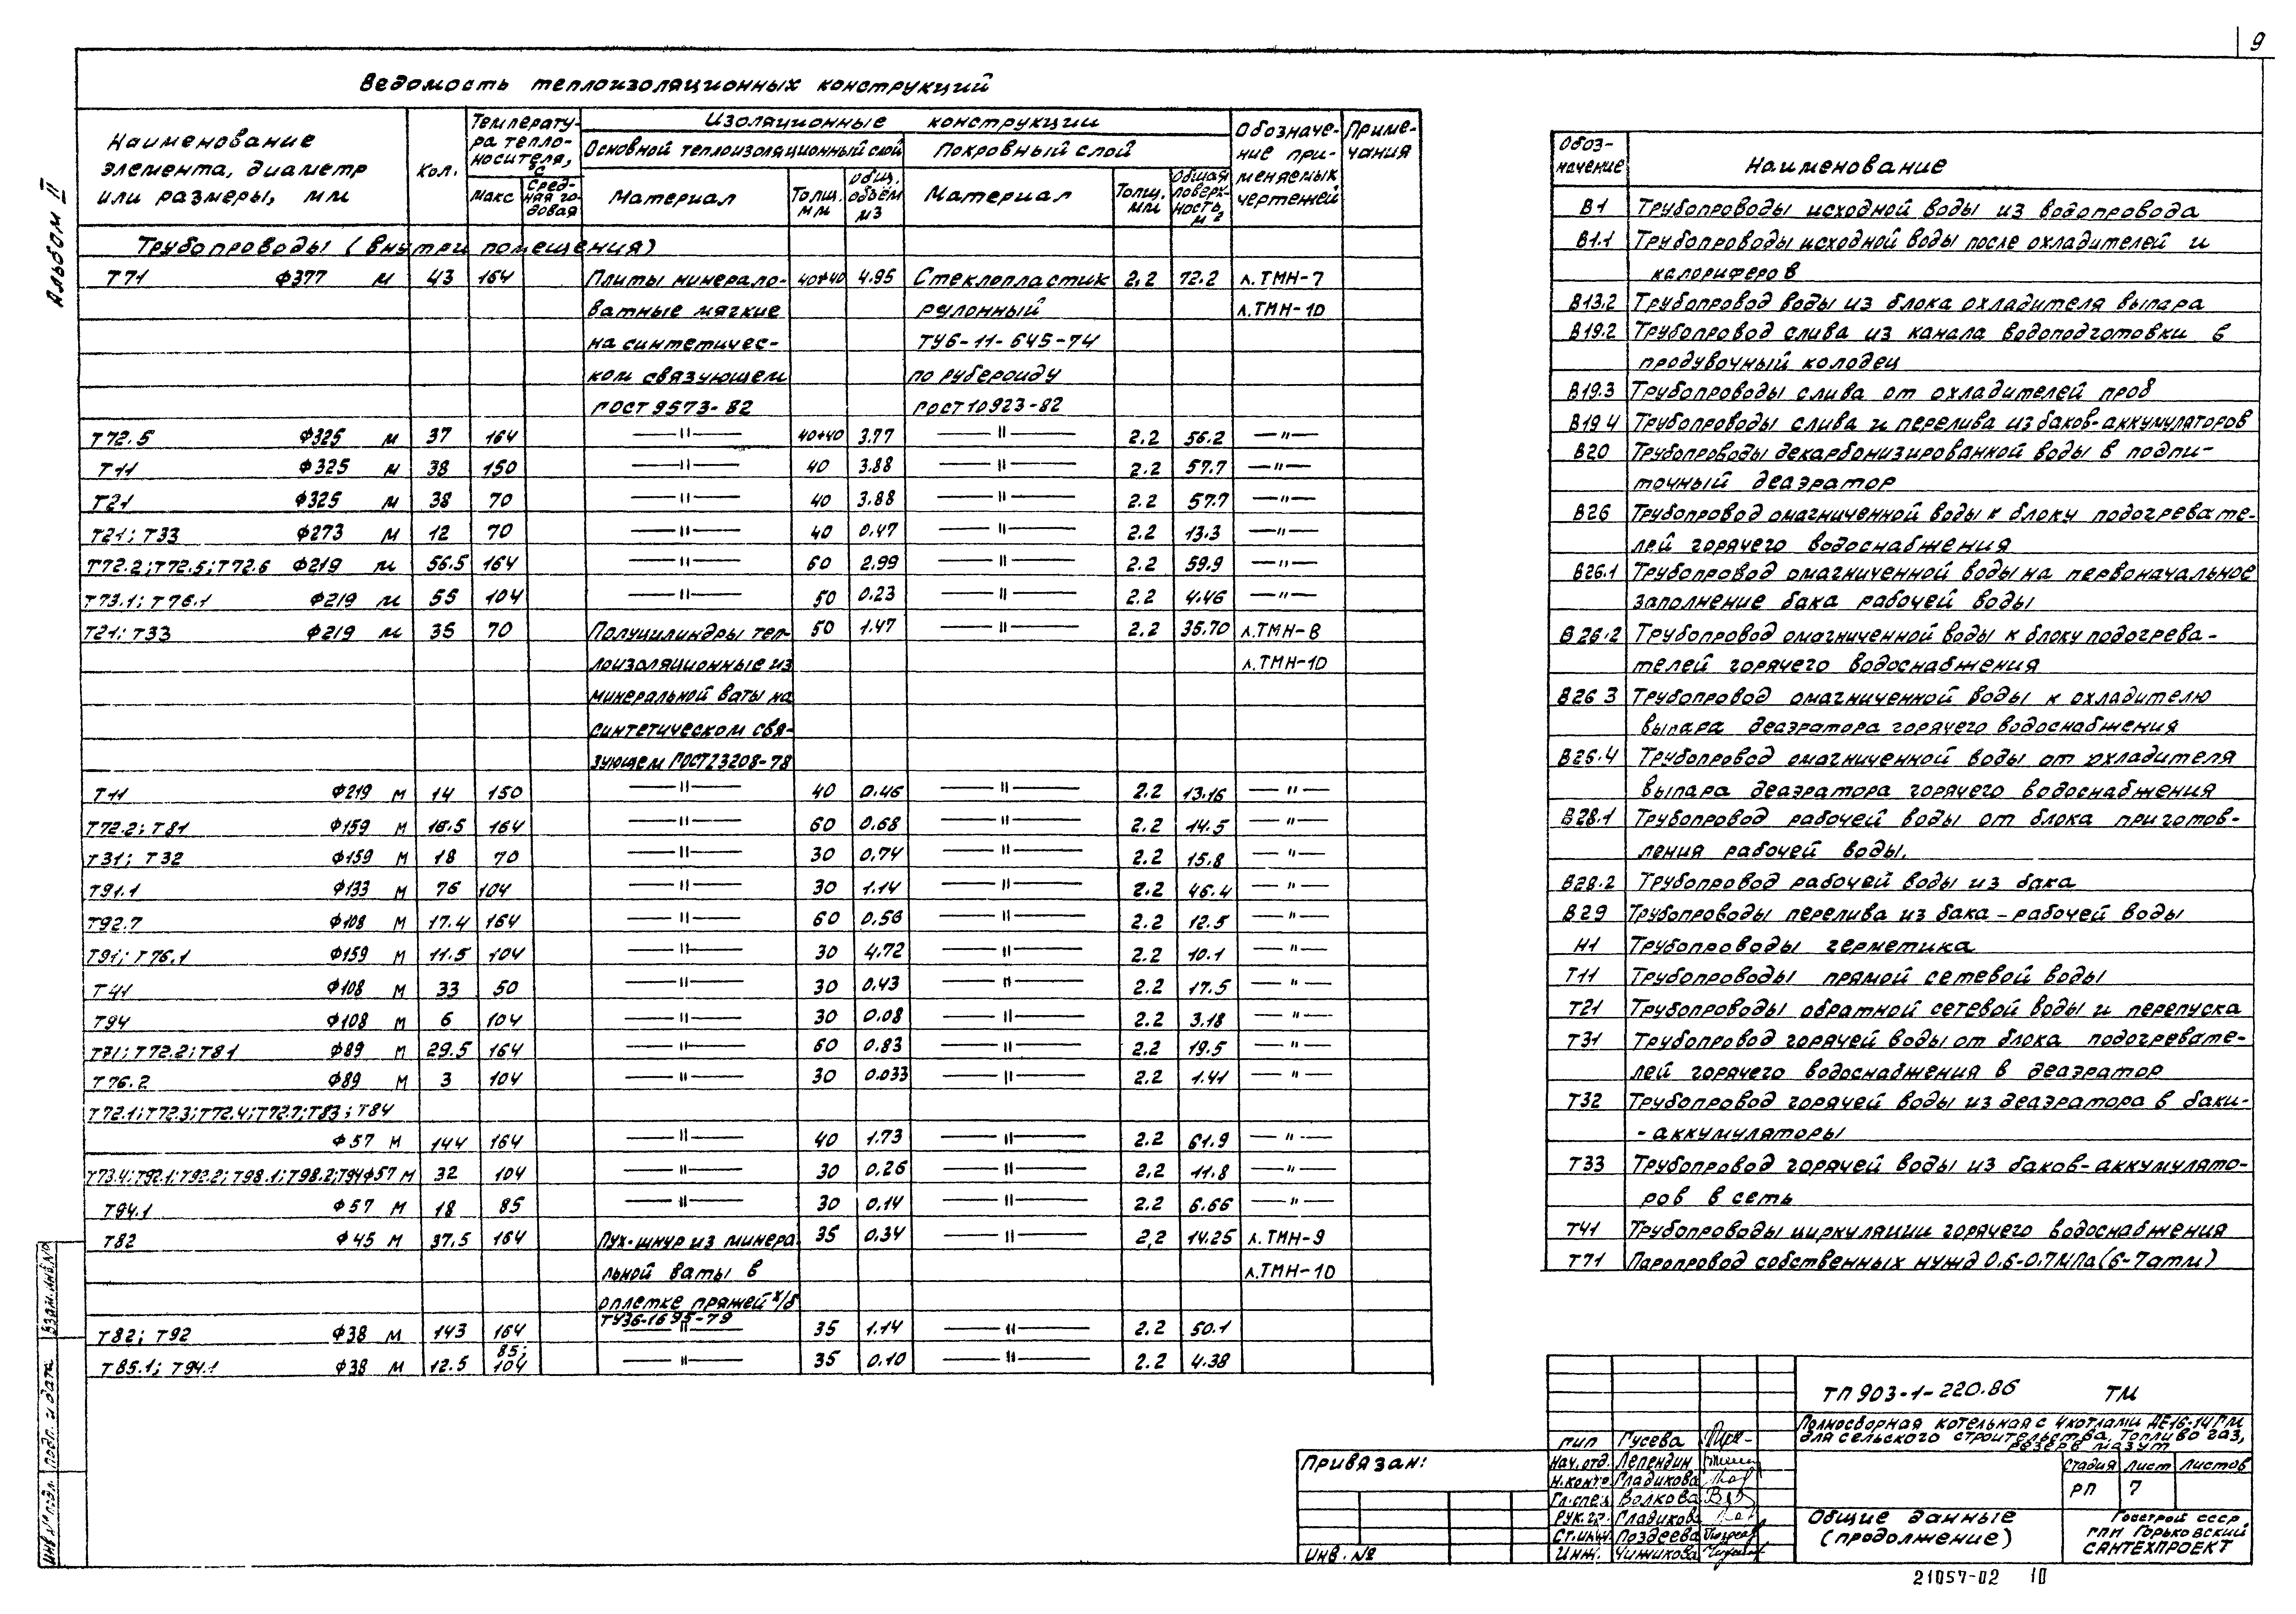 9
Альбом II
Ведомость теплоизоляционных конструкций
Наименование элемента, диаметр или размеры, мм | Кол. | Температура теплоносителя, °С | Изоляционные конструкции | Обозначение применяемых чертежей | Примечания
Основной теплоизоляционный слой | Покровный слой
Макс | Средняя годовая | Материал | Толщ. мм | Общ. объём м3 | Материал | Толщ. мм | Общая поверхность м2
Трубопроводы (внутри помещения)
Т71 Ф377 м 43 164 Плиты минерало- 40+40 4.95 Стеклопластик 2.2 72.2 л.ТМН-7
ватные мягкие рулонный л.ТМН-10
на синтетичес- ТУ6-11-645-74
ком связующем по рубероиду
ГОСТ 9573-82 ГОСТ 10923-82
Т72.5 Ф325 м 37 164 —"— 40+40 3.77 —"— 2.2 56.2 —"—
Т11 Ф325 м 38 150 —"— 40 3.88 —"— 2.2 57.7 —"—
Т21 Ф325 м 38 70 —"— 40 3.88 —"— 2.2 57.7 —"—
Т21; Т33 Ф273 м 12 70 —"— 40 0.47 —"— 2.2 13.3 —"—
Т72.2; Т72.5; Т72.6 Ф219 м 56.5 164 —"— 60 2.99 —"— 2.2 59.9 —"—
Т73.1; Т76.1 Ф219 м 55 104 —"— 50 0.23 —"— 2.2 4.46 —"—
Т21; Т33 Ф219 м 35 70 Полуцилиндры теп- 50 1.47 —"— 2.2 35.70 л.ТМН-8
лоизоляционные из л.ТМН-10
минеральной ваты на
синтетическом свя-
зующем ГОСТ23208-78
Т11 Ф219 м 14 150 —"— 40 0.46 —"— 2.2 13.16 —"—
Т72.2; Т81 Ф159 м 16.5 164 —"— 60 0.68 —"— 2.2 14.5 —"—
Т31; Т32 Ф159 м 18 70 —"— 30 0.74 —"— 2.2 15.8 —"—
Т91.1 Ф133 м 76 104 —"— 30 1.14 —"— 2.2 46.4 —"—
Т92.7 Ф108 м 17.4 164 —"— 60 0.56 —"— 2.2 12.5 —"—
Т91; Т76.1 Ф159 м 11.5 104 —"— 30 4.72 —"— 2.2 10.1 —"—
Т41 Ф108 м 33 50 —"— 30 0.43 —"— 2.2 17.5 —"—
Т94 Ф108 м 6 104 —"— 30 0.08 —"— 2.2 3.18 —"—
Т71; Т72.2; Т81 Ф89 м 29.5 164 —"— 60 0.83 —"— 2.2 19.5 —"—
Т76.2 Ф89 м 3 104 —"— 30 0.033 —"— 2.2 1.41 —"—
Т72.1; Т72.3; Т72.4; Т72.7; Т83; Т84
Ф57 м 144 164 —"— 40 1.73 —"— 2.2 61.9 —"—
Т73.4; Т92.1; Т92.2; Т98.1; Т98.2; Т94 Ф57 м 32 104 —"— 30 0.26 —"— 2.2 11.8 —"—
Т94.1 Ф57 м 18 85 —"— 30 0.14 —"— 2.2 6.66 —"—
Т82 Ф45 м 37.5 164 Пух-шнур из минера 35 0.34 —"— 2,2 14.25 л.ТМН-9
льной ваты в л.ТМН-10
оплетке пряжей х/б
ТУ36-1695-79
Т82; Т92 Ф38 м 143 164 —"— 35 1.14 —"— 2.2 50.1
Т85.1; Т94.1 Ф38 м 12.5 85; 104 —"— 35 0.10 —"— 2.2 4.38
Обоз-
начение Наименование
В1 Трубопроводы исходной воды из водопровода
В1.1 Трубопроводы исходной воды после охладителей и
калориферов
В13.2 Трубопровод воды из блока охладителя выпара
В19.2 Трубопровод слива из канала водоподготовки в
продувочный колодец
В19.3 Трубопроводы слива от охладителей проб
В19 4 Трубопроводы слива и перелива из баков-аккумуляторов
В20 Трубопроводы декарбонизированной воды в подпи-
точный деаэратор
В26 Трубопровод омагниченной воды к блоку подогревате-
лей горячего водоснабжения
В26.1 Трубопровод омагниченной воды на первоначальное
заполнение бака рабочей воды
В26.2 Трубопровод омагниченной воды к блоку подогрева-
телей горячего водоснабжения
В26 3 Трубопровод омагниченной воды к охладителю
выпара деаэратора горячего водоснабжения
В26.4 Трубопровод омагниченной воды от охладителя
выпара деаэратора горячего водоснабжения
В28.1 Трубопровод рабочей воды от блока приготов-
ления рабочей воды.
В28.2 Трубопровод рабочей воды из бака
В29 Трубопроводы перелива из бака-рабочей воды
Н1 Трубопроводы герметика
Т11 Трубопроводы прямой сетевой воды
Т21 Трубопроводы обратной сетевой воды и перепуска
Т31 Трубопровод горячей воды от блока подогревате-
лей горячего водоснабжения в деаэратор
Т32 Трубопровод горячей воды из деаэратора в баки-
-аккумуляторы
Т33 Трубопровод горячей воды из баков-аккумулято-
ров в сеть
Т41 Трубопроводы циркуляции горячего водоснабжения
Т71 Паропровод собственных нужд 0.6-0.7МПа (6-7атм)
Взам.инв.№
Подп. и дата
Инв.№ подл.
Привязан:
Инв. №
ТП 903-1-220.86 ТМ
Полносборная котельная с 4 котлами ДЕ16-14ГМ
для сельского строительства. Топливо газ,
резерв мазут
ГИП Гусева
Нач.отд. Лепендин
Н.контр Гладикова
Гл.спец Волкова
Рук.гр. Гладикова
Ст.инж Поздеева
Инж. Чижикова
Стадия Лист Листов
РП 7
Общие данные
(продолжение)
Госстрой СССР
ГПИ Горьковский
САНТЕХПРОЕКТ
21057-02 10